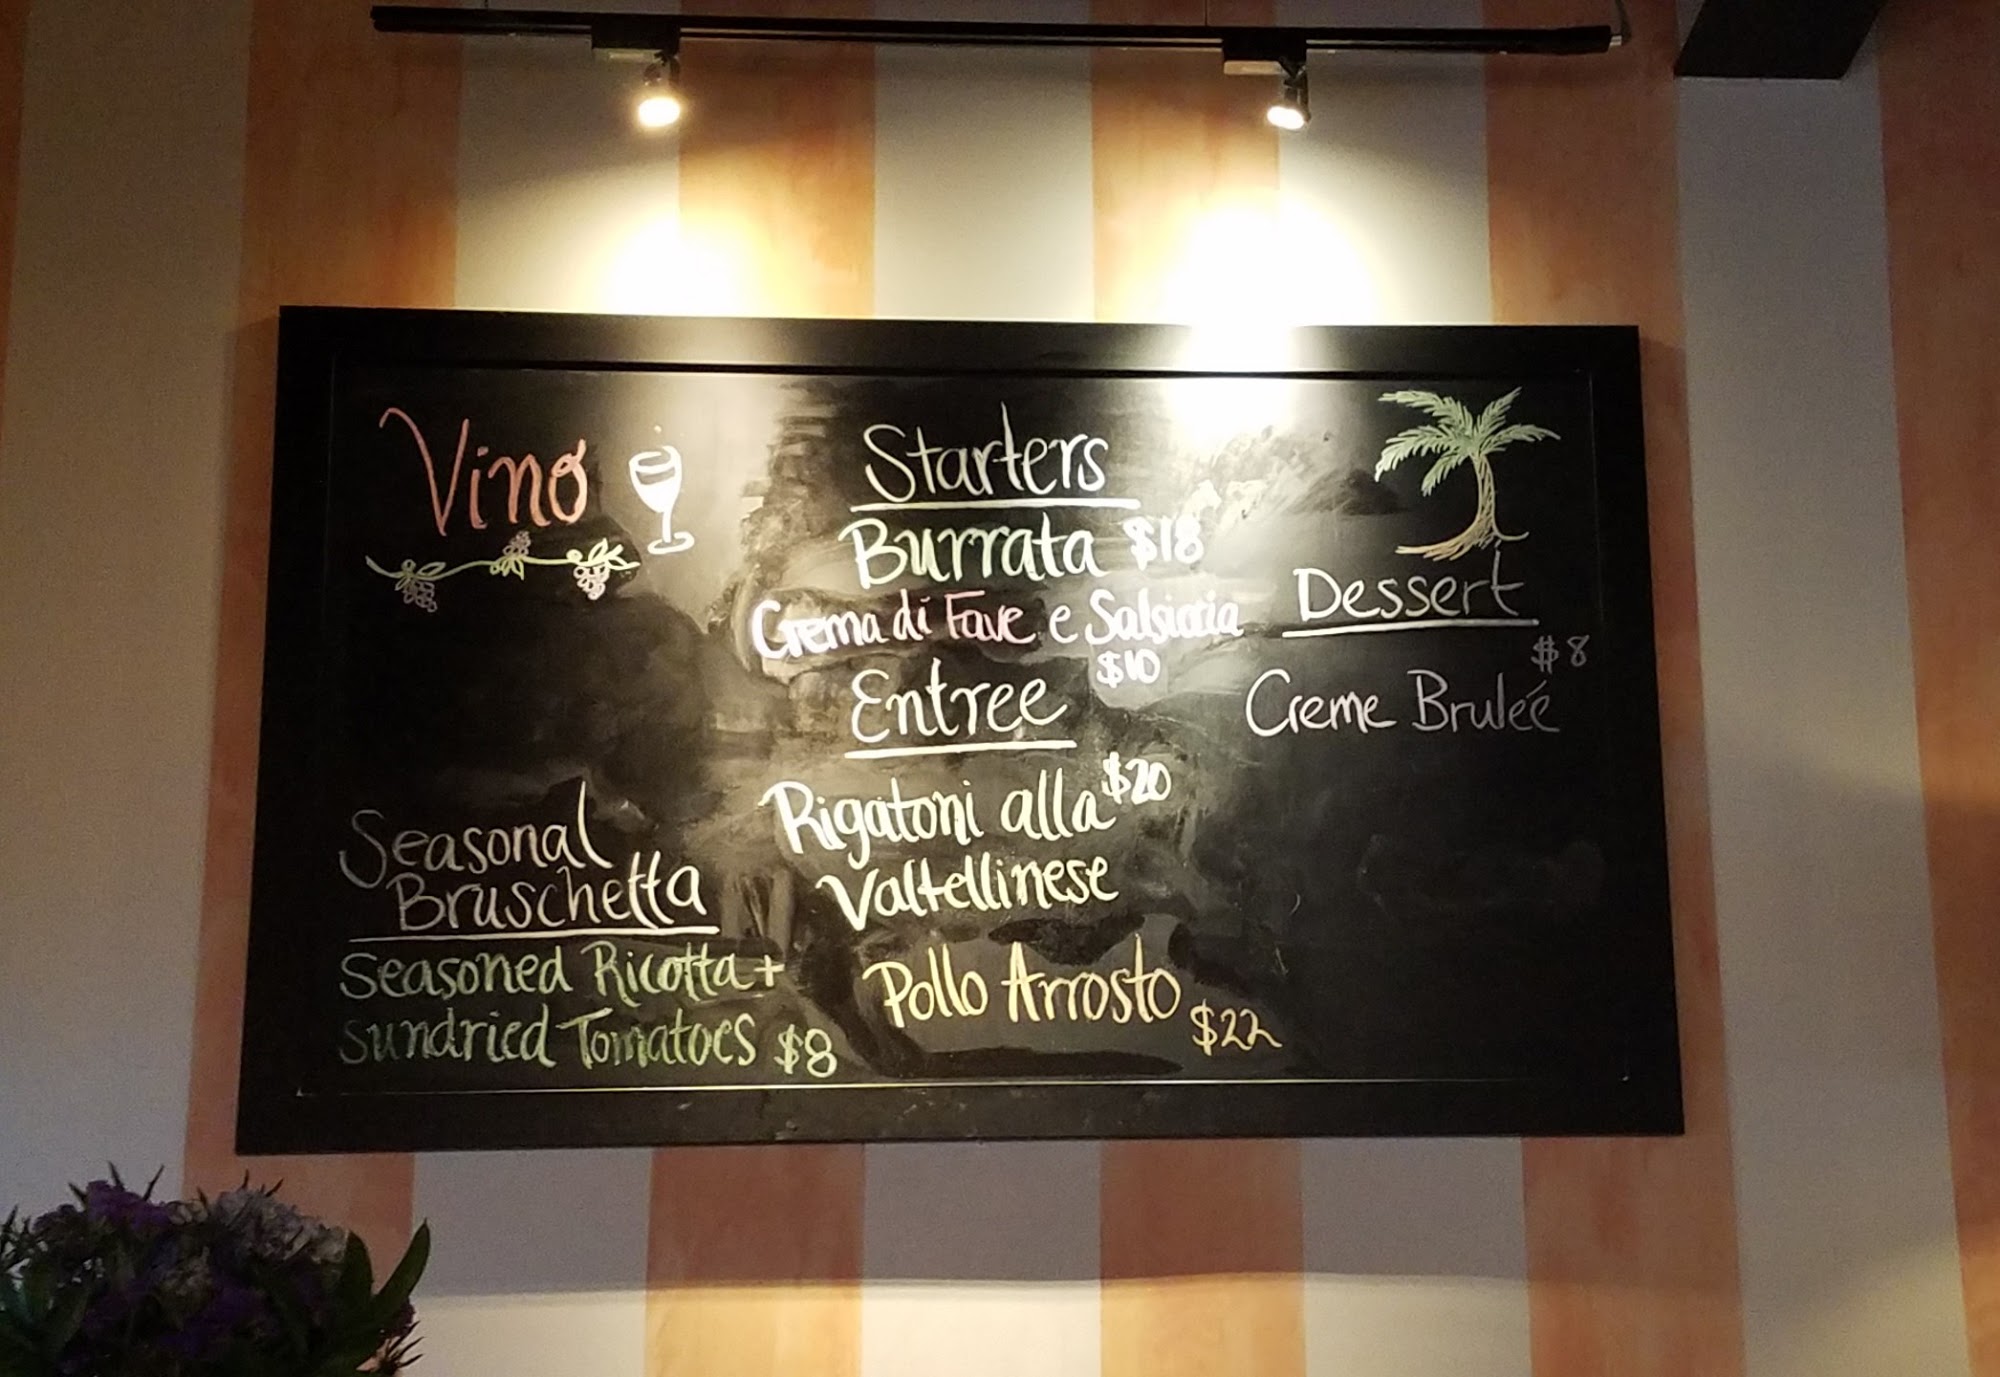 Vino
Seasonal
Bruschetta
Seasoned Ricotta +
Sundried Tomatoes $8
Starters
Burrata $18
Crema di Fave e Salsiccia
$10
Entree
Rigatoni alla $20
Valtellinese
Pollo Arrosto
$22
Dessert
$8
Creme Bruleé